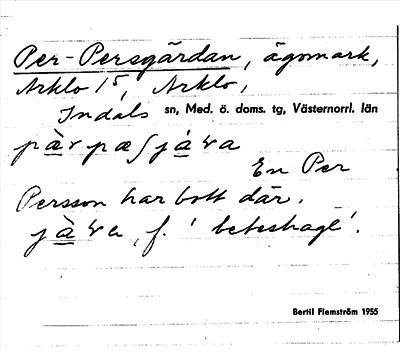 Per-Persgärdan, ägomark,
Arklo 1⁵, Arklo,
Indals sn, Med. ö. doms. tg, Västernorrl. län
pàr pæʃjàva
En Per
Persson har bott där.
jàva, f. 'beteshage'.
Bertil Flemström 1955